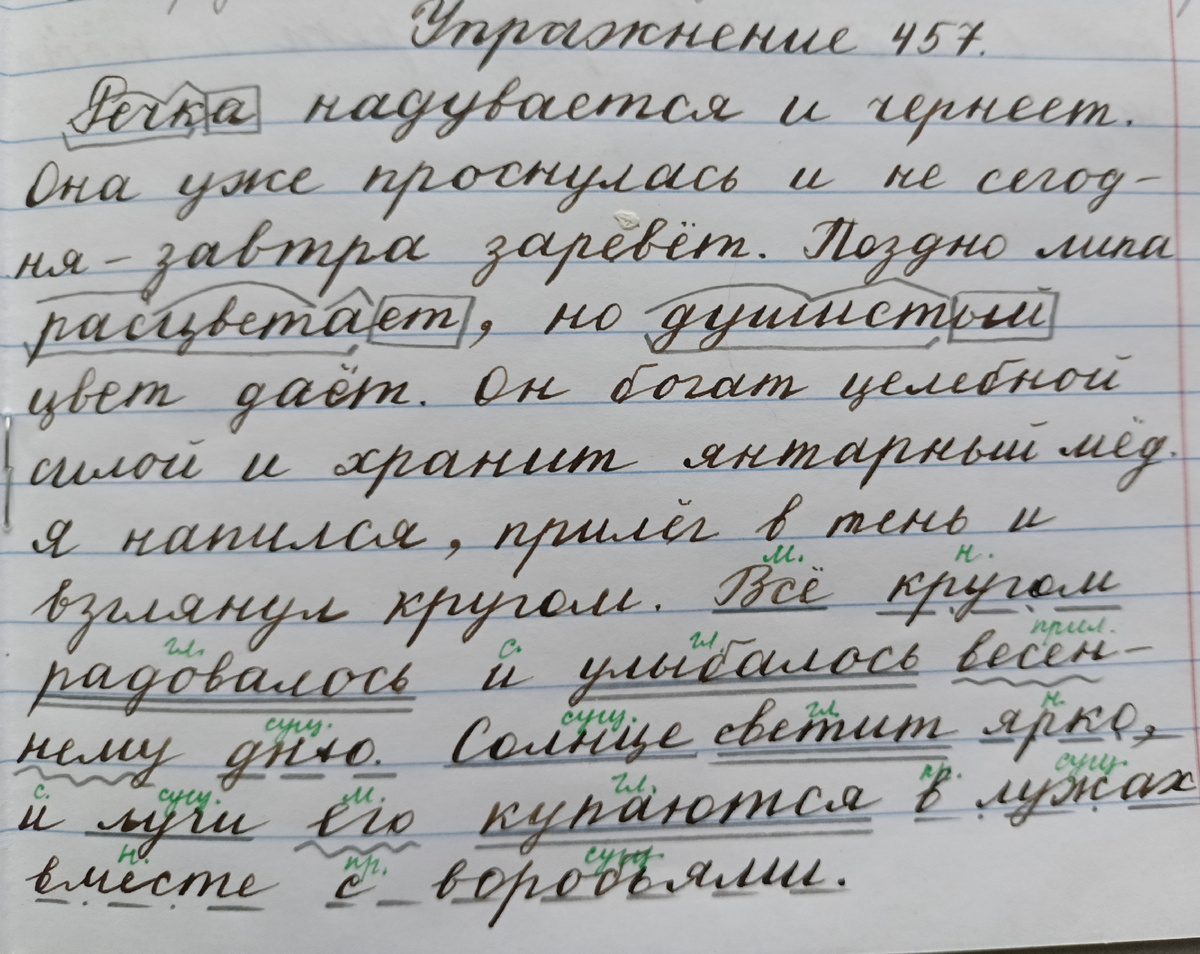 Упражнение 457.
Речка надувается и чернеет.
Она уже проснулась и не сегод-
ня - завтра заревёт. Поздно липа
расцветает, но душистый
цвет даёт. Он богат целебной
силой и хранит янтарный мёд.
Я напился, прилёг в тень и
взглянул кругом. Всё кругом
м. н.
радовалось и улыбалось весен-
гл. с. гл. прил.
нему дню. Солнце светит ярко,
сущ. сущ. гл. н.
и лучи его купаются в лужах
с. сущ. м. гл. пр. сущ.
вместе с воробьями.
н. пр. сущ.